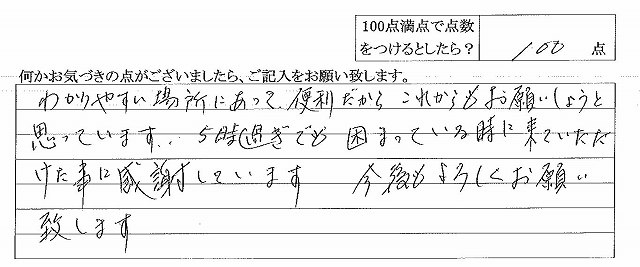 100点満点で点数
をつけるとしたら？ 100 点
何かお気づきの点がございましたら、ご記入をお願い致します。
わかりやすい場所にあって、便利だから これからもお願いしようと
思っています... 5時過ぎでも 困まっている時に来ていただ
けた事に感謝しています 今後もよろしくお願い
致します